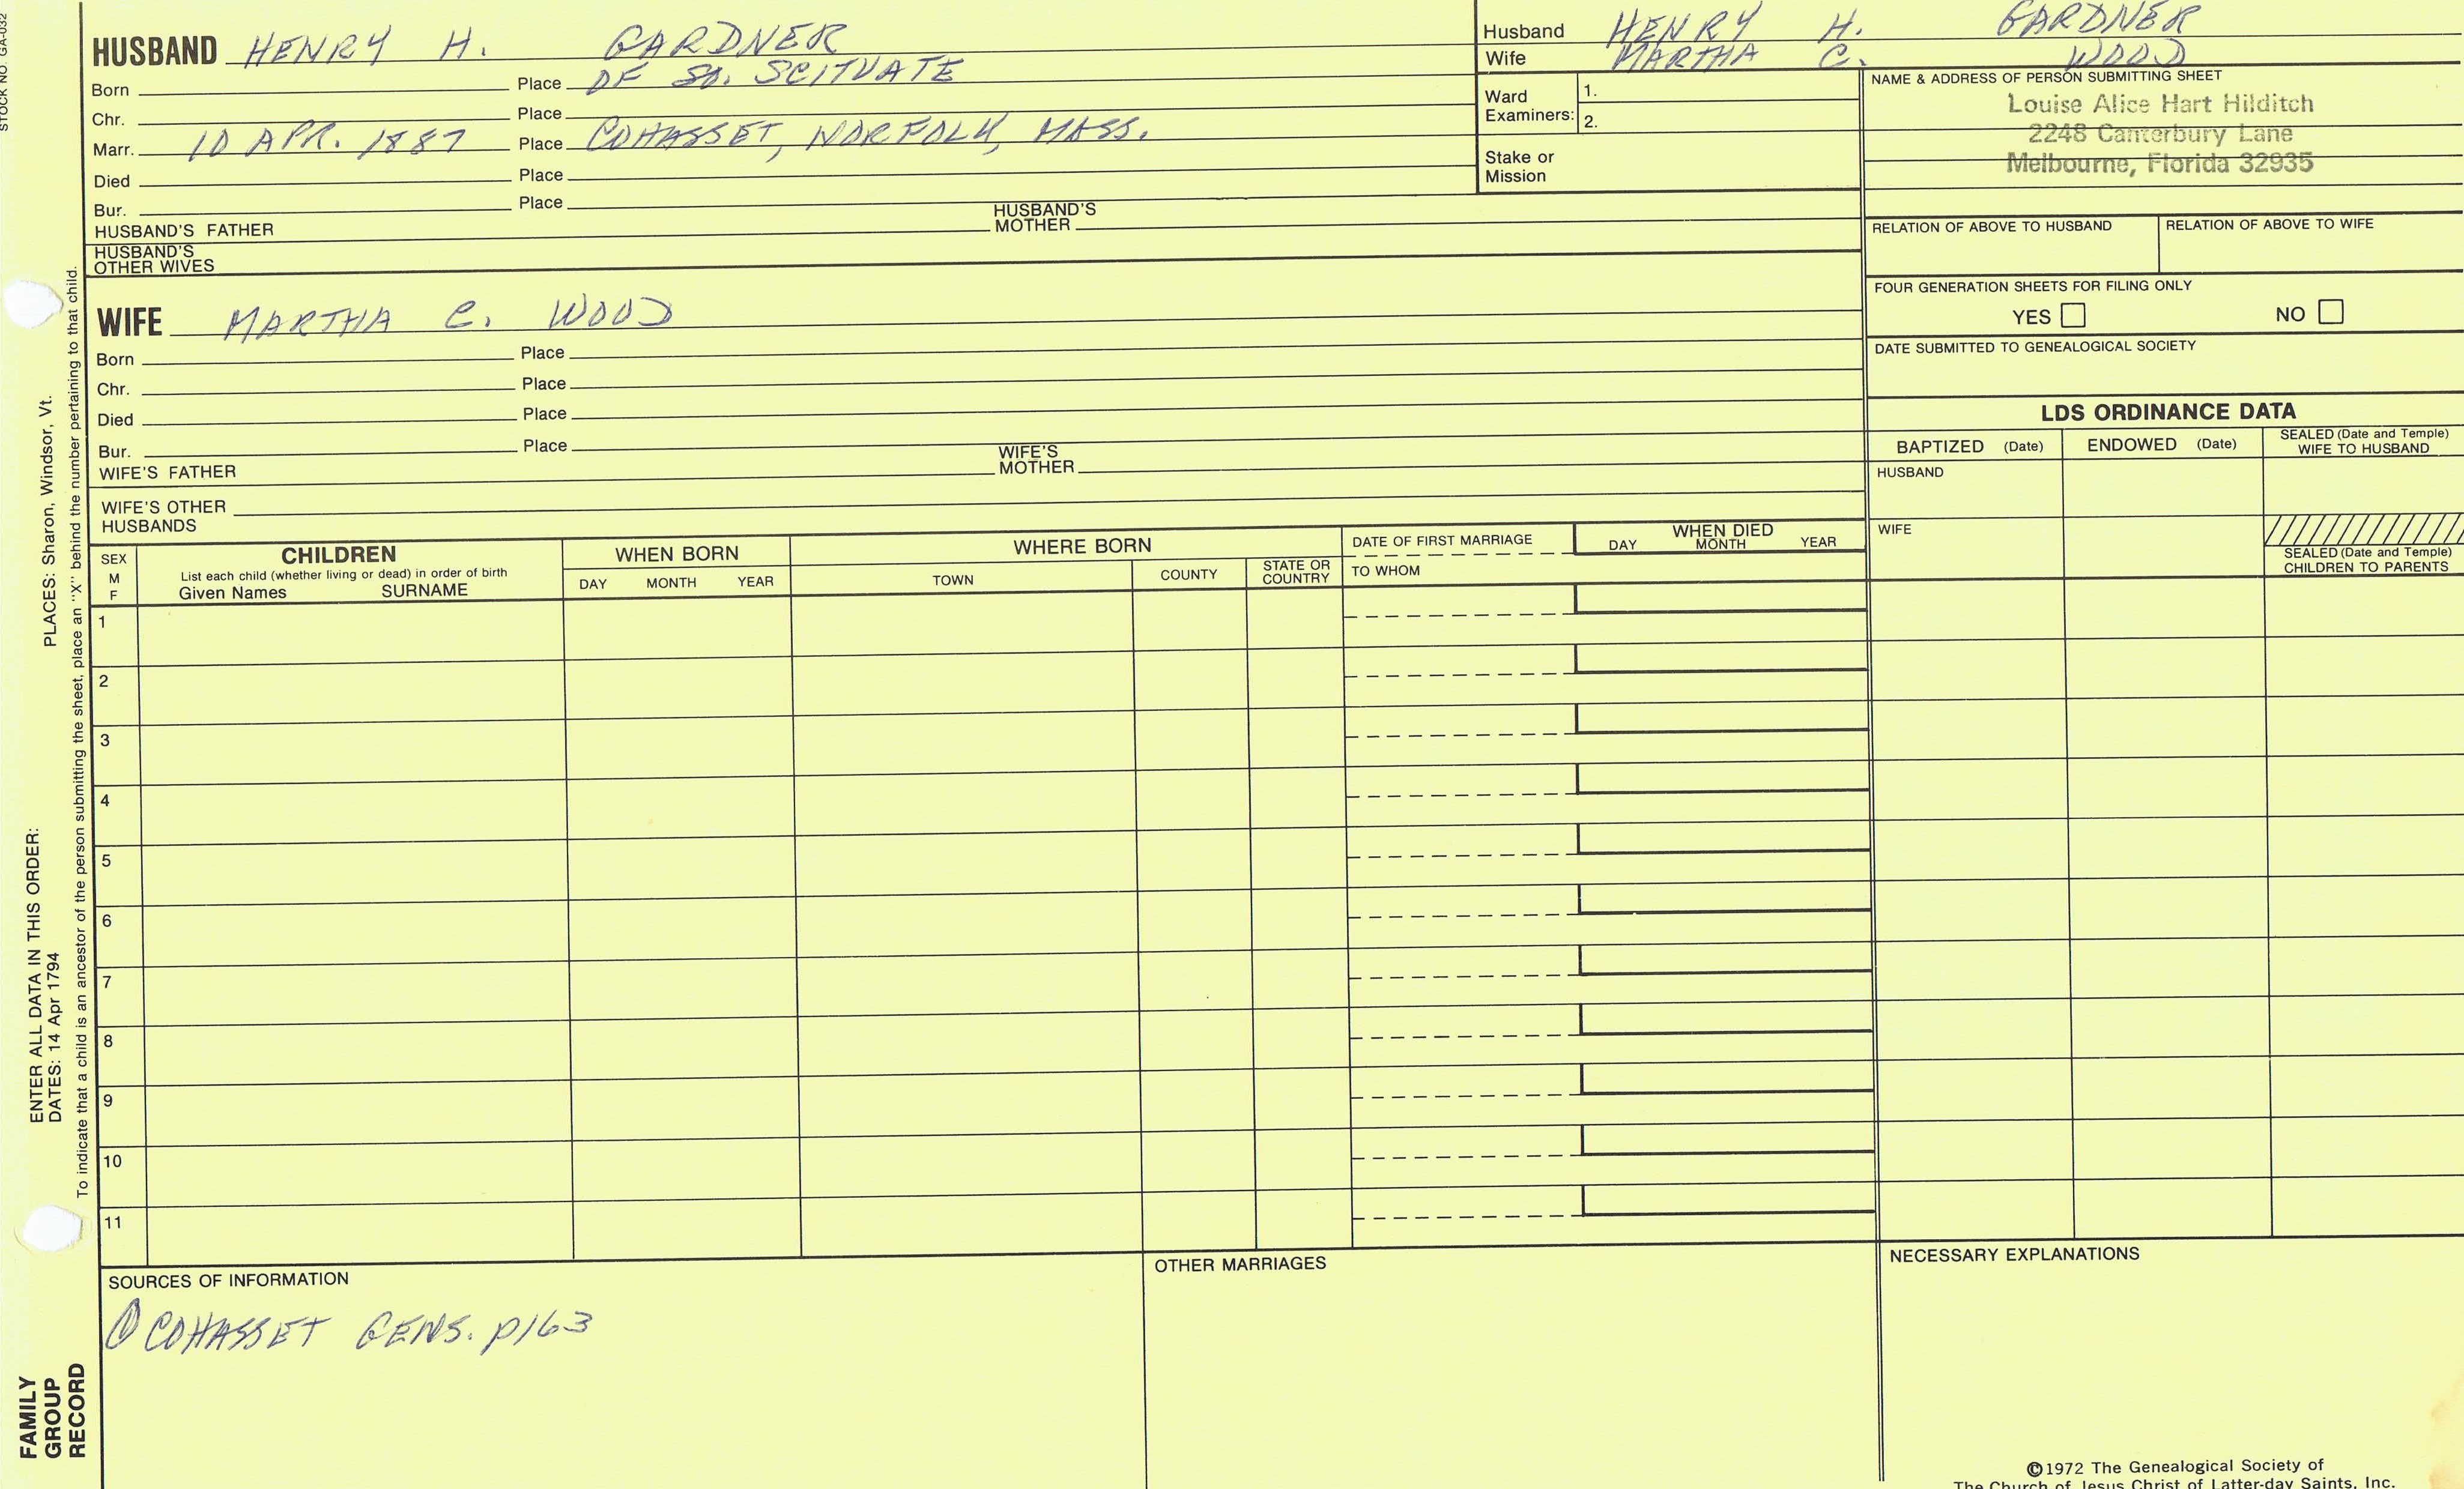 STOCK NO. GA-032
HUSBAND HENRY H. GARDNER
Born Place OF SO. SCITUATE
Chr. Place
Marr. 10 APR. 1887 Place COHASSET, NORFOLK, MASS.
Died Place
Bur. Place
HUSBAND'S FATHER HUSBAND'S MOTHER
HUSBAND'S OTHER WIVES
Husband HENRY H. GARDNER
Wife MARTHA C. WOOD
Ward Examiners: 1.
2.
Stake or Mission
NAME & ADDRESS OF PERSON SUBMITTING SHEET
Louise Alice Hart Hilditch
2248 Canterbury Lane
Melbourne, Florida 32935
RELATION OF ABOVE TO HUSBAND RELATION OF ABOVE TO WIFE
FOUR GENERATION SHEETS FOR FILING ONLY
YES NO
DATE SUBMITTED TO GENEALOGICAL SOCIETY
WIFE MARTHA C. WOOD
Born Place
Chr. Place
Died Place
Bur. Place
WIFE'S FATHER WIFE'S MOTHER
WIFE'S OTHER HUSBANDS
LDS ORDINANCE DATA
BAPTIZED (Date) ENDOWED (Date) SEALED (Date and Temple) WIFE TO HUSBAND
HUSBAND
WIFE
SEALED (Date and Temple) CHILDREN TO PARENTS
SEX M F
CHILDREN
List each child (whether living or dead) in order of birth
Given Names SURNAME
WHEN BORN
DAY MONTH YEAR
WHERE BORN
TOWN COUNTY STATE OR COUNTRY
DATE OF FIRST MARRIAGE
TO WHOM
WHEN DIED
DAY MONTH YEAR
1
2
3
4
5
6
7
8
9
10
11
SOURCES OF INFORMATION
① COHASSET GENS. p163
OTHER MARRIAGES
NECESSARY EXPLANATIONS
©1972 The Genealogical Society of
The Church of Jesus Christ of Latter-day Saints, Inc.
ENTER ALL DATA IN THIS ORDER:
DATES: 14 Apr 1794 PLACES: Sharon, Windsor, Vt.
To indicate that a child is an ancestor of the person submitting the sheet, place an "X" behind the number pertaining to that child.
FAMILY
GROUP
RECORD